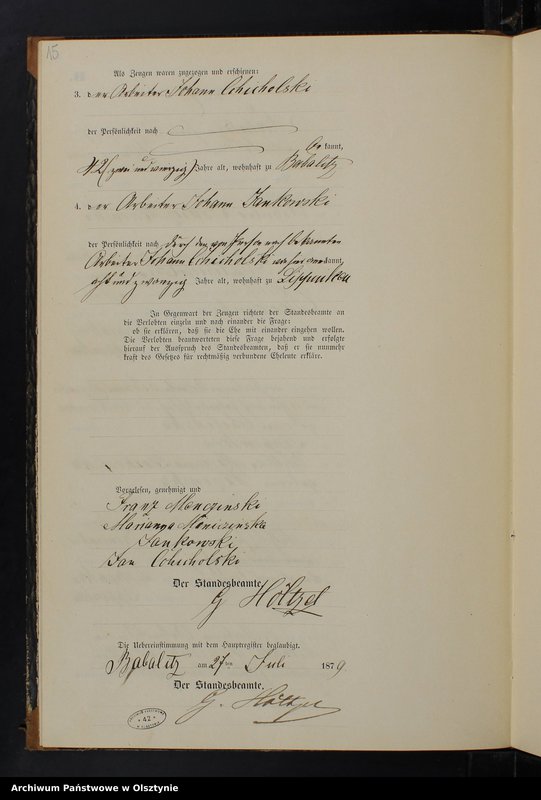 15
Als Zeugen waren zugezogen und erschienen:
3. der Arbeiter Johann Chicholski
der Persönlichkeit nach
be kannt,
42 (zwei und vierzig) Jahre alt, wohnhaft zu Babalitz
4. der Arbeiter Johann Jankowski
der Persönlichkeit nach durch den von Person nach bekannten
Arbeiter Johann Chicholski anerkannt,
acht und zwanzig Jahre alt, wohnhaft zu
In Gegenwart der Zeugen richtete der Standesbeamte an
die Verlobten einzeln und nach einander die Frage:
ob sie erklären, daß sie die Ehe mit einander eingehen wollen.
Die Verlobten beantworteten diese Frage bejahend und erfolgte
hierauf der Ausspruch des Standesbeamten, daß er sie nunmehr
kraft des Gesetzes für rechtmäßig verbundene Eheleute erkläre.
Vorgelesen, genehmigt und
Franz
Marianna
Jankowski
Jan Chicholski
Der Standesbeamte.
G Höltzel
Die Uebereinstimmung mit dem Hauptregister beglaubigt.
Babalitz am 27ten Juli 1879
Der Standesbeamte.
G. Höltzel
42
Archiwum Państwowe w Olsztynie